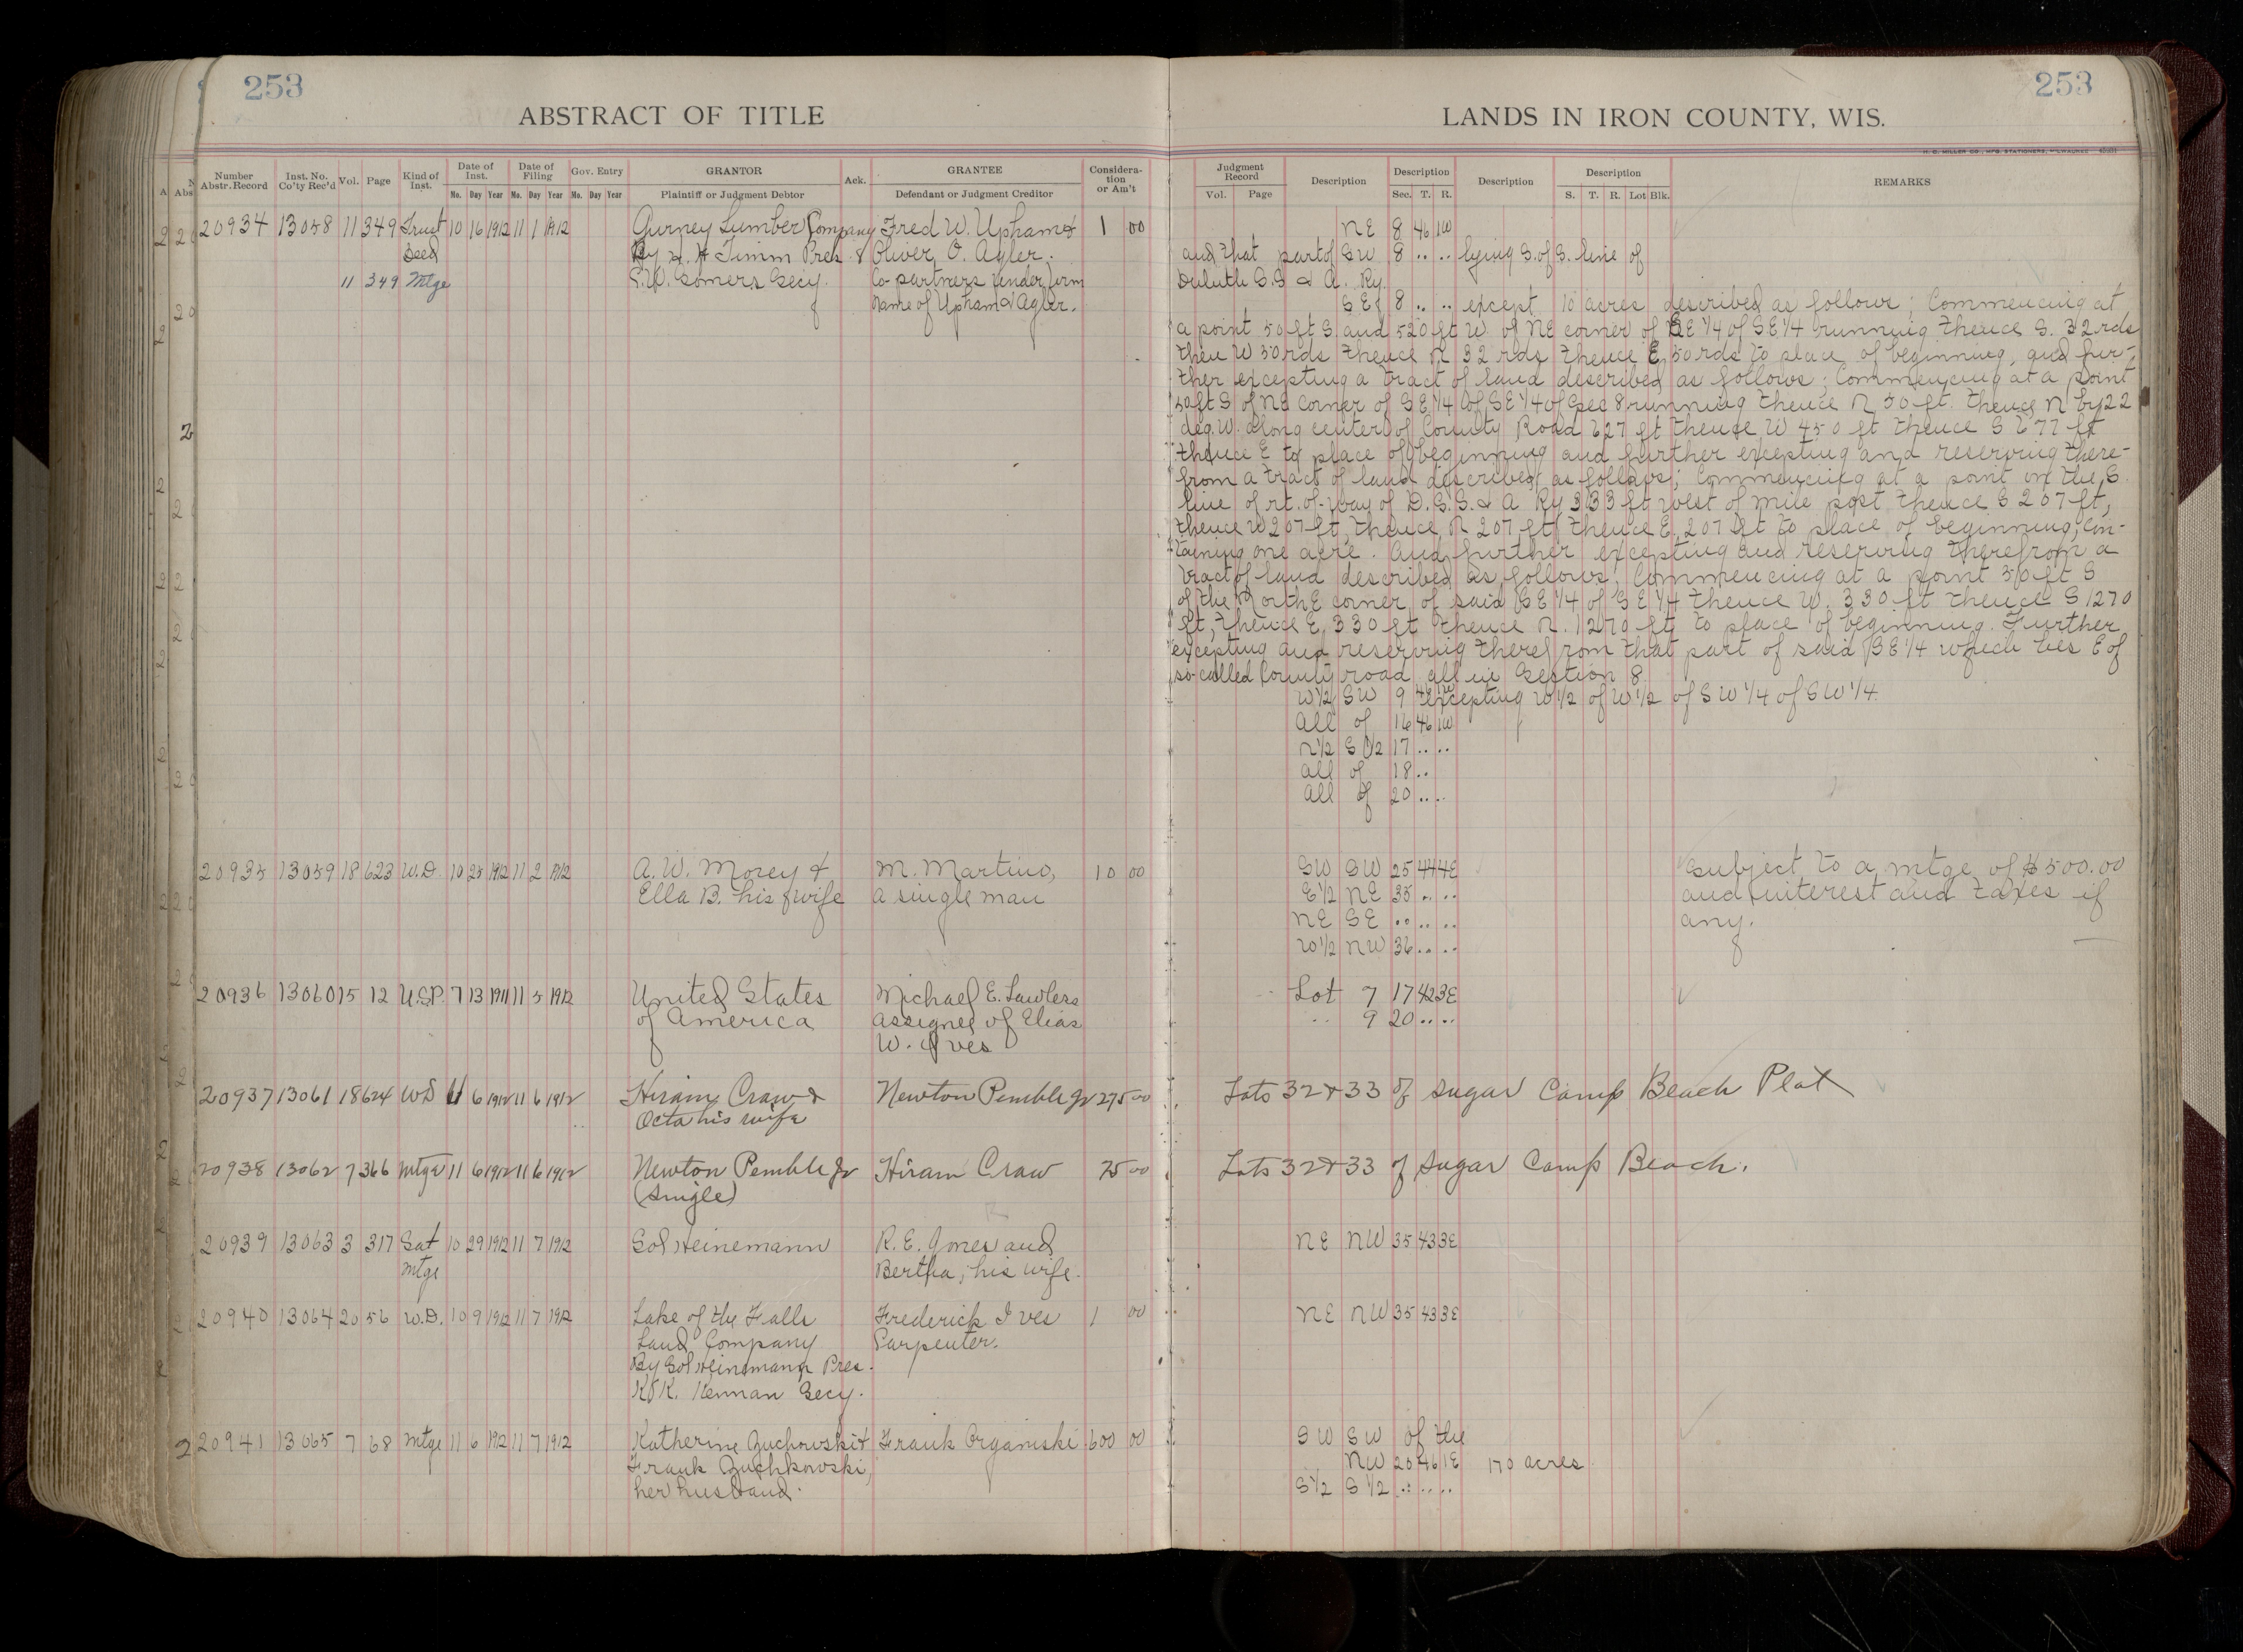 253
253
ABSTRACT OF TITLE
LANDS IN IRON COUNTY, WIS.
H. C. MILLER CO., MFG. STATIONERS, MILWAUKEE
Number Abstr. Record Inst. No. Co'ty Rec'd Vol. Page Kind of Inst. Date of Inst. Mo. Day Year Date of Filing Mo. Day Year Gov. Entry Mo. Day Year GRANTOR Plaintiff or Judgment Debtor Ack. GRANTEE Defendant or Judgment Creditor Consideration or Am't
Judgment Record Vol. Page Description Description Sec. T. R. Description Description S. T. R. Lot Blk. REMARKS
20934 13058 11 349 Trust 10 16 1912 11 1 1912 Gurney Lumber Company Fred W. Upham & 1 00
Deed By H Timm Pres & Oliver O. Agler.
11 349 Mtge Somers Secy. Co-partners under firm
name of Upham & Agler.
NE 8 46 1W
and that part of SW 8 .. .. lying S. of S. line of
Duluth S.S & A. Ry.
SE 8 .. .. except 10 acres described as follows; Commencing at
a point 50 ft S. and 520 ft W. of NE corner of SE 1/4 of SE 1/4 running thence S. 32 rds
then W 50 rds thence N 32 rds thence E. 50 rds to place of beginning, and fur-
ther excepting a tract of land described as follows; Commencing at a point
50 ft S of NE corner of SE 1/4 of SE 1/4 of Sec 8 running thence N 50 ft. thence N by 22
deg. W. along center of County Road 627 ft thence W 450 ft thence S 677 ft
thence E to place of beginning and further excepting and reserving there-
from a tract of land described as follows; Commencing at a point on the S.
line of rt. of-way of D.S.S. & A Ry 333 ft west of mile post thence S 207 ft,
thence W 207 ft, thence N 207 ft, thence E. 207 ft to place of beginning, con-
taining one acre. And further excepting and reserving therefrom a
tract of land described as follows; Commencing at a point 50 ft S
of the North E corner of said SE 1/4 of SE 1/4 thence W. 330 ft thence S 1270
ft, thence E. 330 ft thence N. 1270 ft to place of beginning. Further
excepting and reserving therefrom that part of said SE 1/4 which lies E of
so-called County road all in Section 8.
W 1/2 SW 9 46 1W excepting W 1/2 of W 1/2 of SW 1/4 of SW 1/4.
All of 16 46 1W
N 1/2 S 1/2 17 .. ..
All of 18 ..
All of 20 .. ..
20935 13059 18 623 W.D. 10 25 1912 11 2 1912 A. W. Morey & M. Martino, 10 00 SW SW 25 44 4E Subject to a mtge of $500.00
Ella B. his wife a single man E 1/2 NE 35 .. .. and interest and taxes if
NE SE .. .. .. any.
W 1/2 NW 36 .. ..
20936 13060 15 12 U.S.P. 7 13 1911 11 5 1912 United States Michael E. Lawlers Lot 7 17 42 3E
of America assignee of Elias .. 9 20 .. ..
W. Ives
20937 13061 18 624 WD 11 6 1912 11 6 1912 Hiram Craw & Newton Pemble Jr 275 00 Lots 32 & 33 of Sugar Camp Beach Plat
Octa his wife
20938 13062 7 366 Mtge 11 6 1912 11 6 1912 Newton Pemble Jr Hiram Craw 75 00 Lots 32 & 33 of Sugar Camp Beach.
(Single)
20939 13063 3 317 Sat 10 29 1912 11 7 1912 Sol Heinemann R. E. Jones and NE NW 35 43 3E
Mtge Bertha, his wife.
20940 13064 20 56 W.D. 10 9 1912 11 7 1912 Lake of the Falls Frederick Ives 1 00 NE NW 35 43 3E
Land Company Carpenter.
By Sol Heinemann Pres.
K. K. Kennan Secy.
20941 13065 7 68 Mtge 11 6 1912 11 7 1912 Katherine Zuchowski & Frank Organiski 600 00 SW SW of the
Frank Zuchkowski, NW 20 46 1E 170 acres
her husband. S 1/2 S 1/2 .. .. ..